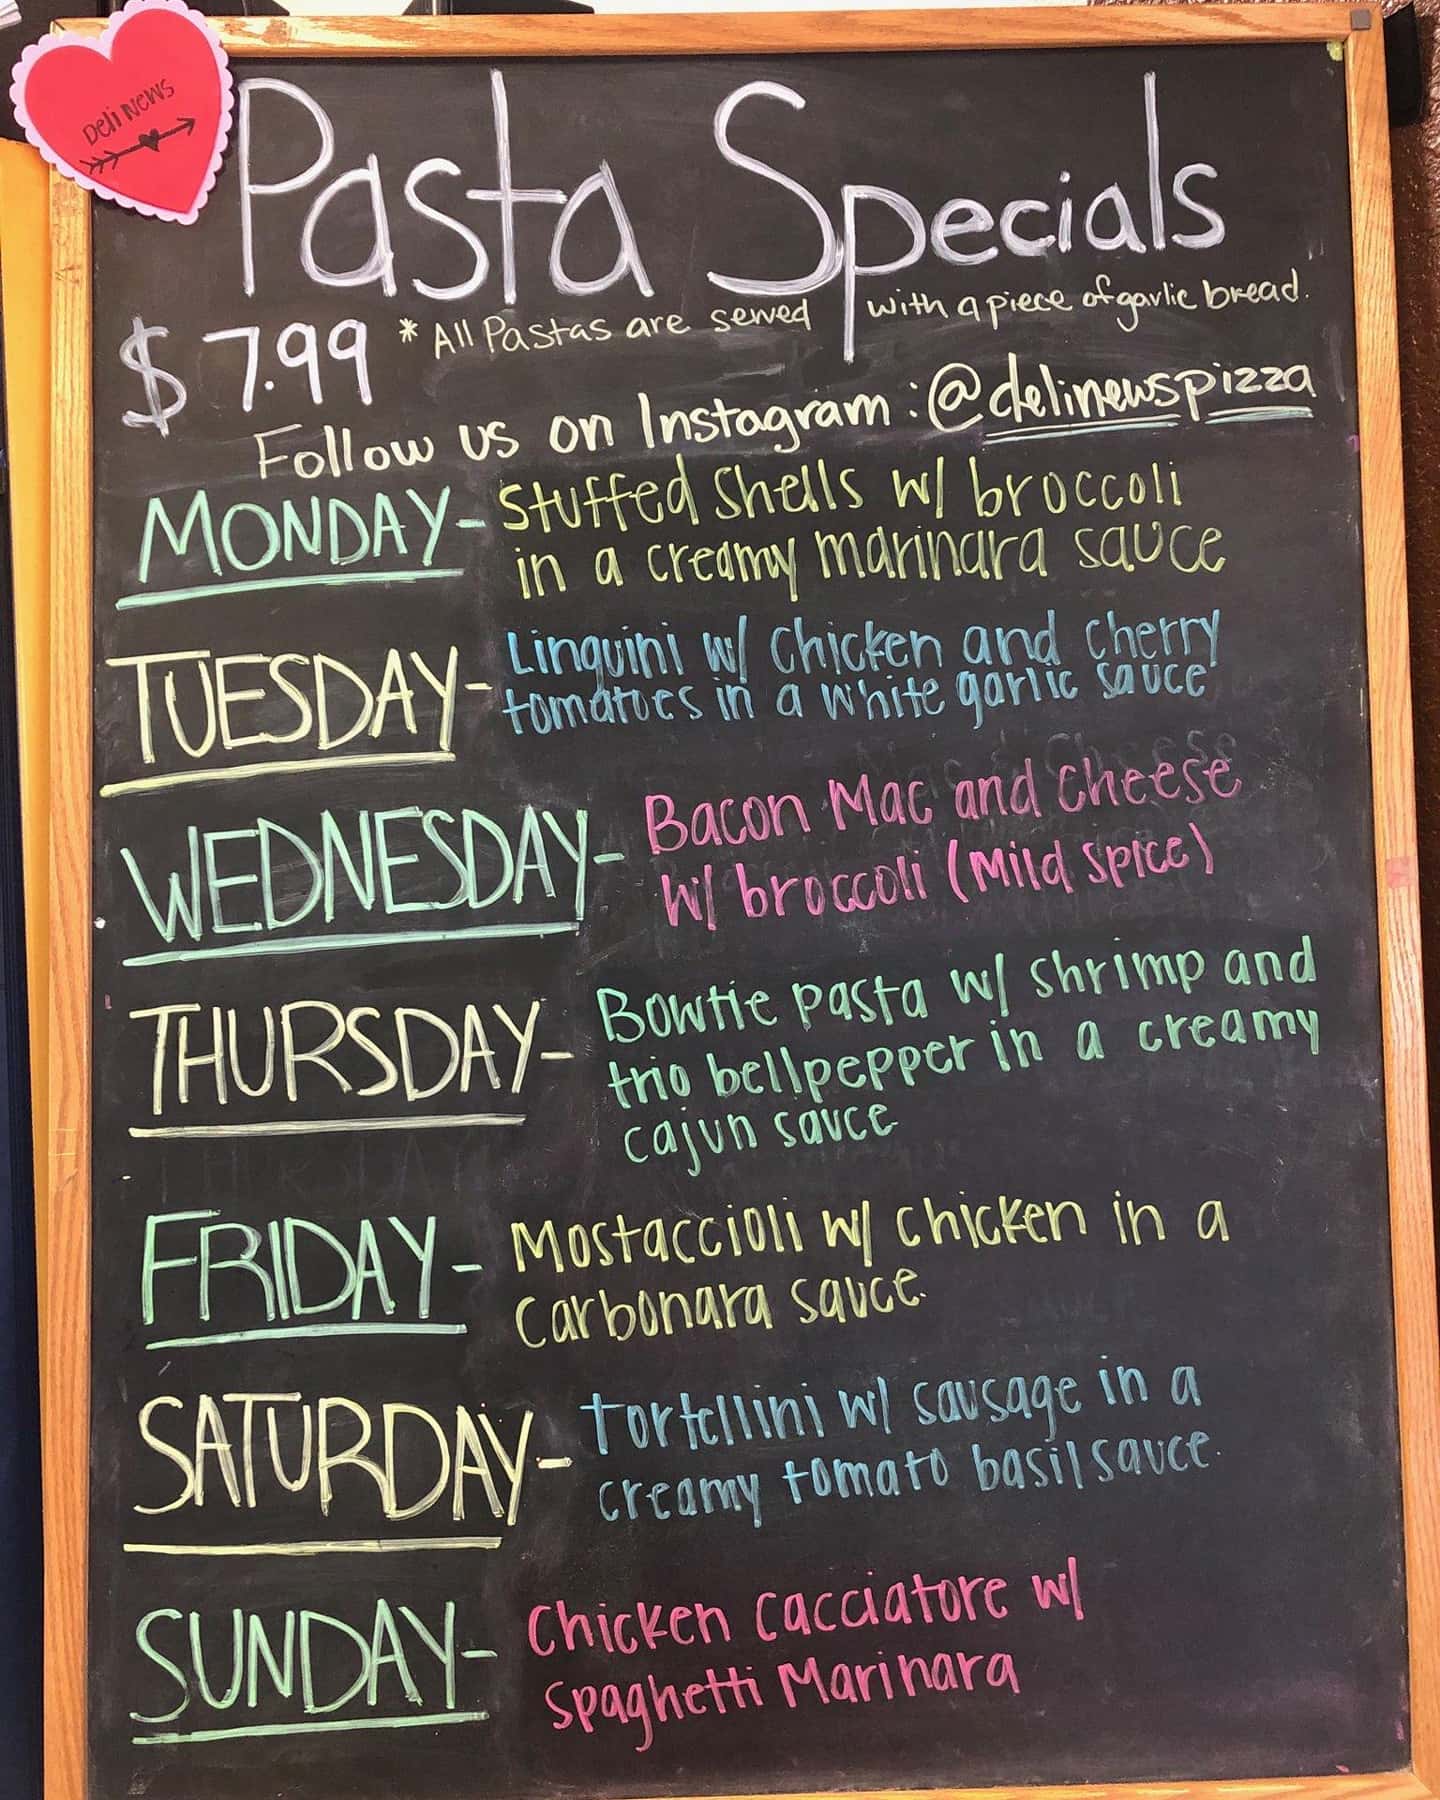 Deli News
Pasta Specials
$7.99 *All Pastas are served with a piece of garlic bread.
Follow us on Instagram: @delinewspizza
MONDAY- Stuffed Shells w/ broccoli
in a creamy marinara sauce
TUESDAY- Linguini w/ chicken and cherry
tomatoes in a white garlic sauce
WEDNESDAY- Bacon Mac and cheese
w/ broccoli (Mild spice)
THURSDAY- Bowtie pasta w/ shrimp and
trio bellpepper in a creamy
cajun sauce
FRIDAY- Mostaccioli w/ chicken in a
Carbonara sauce.
SATURDAY- Tortellini w/ sausage in a
creamy tomato basil sauce.
SUNDAY- Chicken Cacciatore w/
Spaghetti Marinara